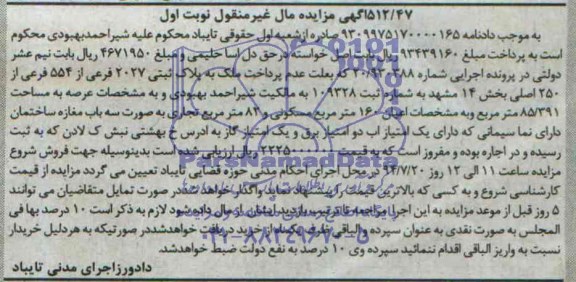 ۵۱۲/۴۷آگهی مزایده مال غیرمنقول نوبت اول
به موجب دادنامه ۹۳۰۹۹۷۵۱۷۰۰۰۰۱۶۵ صادره ازشعبه اول حقوقی تایباد محکوم علیه شیراحمدبهبودی محکوم
است به پرداخت مبلغ ۹۳۴۳۹۱۶۰ ریال بابت اصل خواسته درحق دل آسا حلیمی ومبلغ ۴۶۷۱۹۵۰ ریال بابت نیم عشر
دولتی در پرونده اجرایی شماره ۲۰/۹۳۰۳۸۸ که بعلت عدم پرداخت ملک به پلاک ثبتی ۲۰۲۷ فرعی از ۵۵۴ فرعی از
۲۵۰ اصلی بخش ۱۴ مشهد به شماره ثبت ۱۰۹۳۲۸ به مالکیت شیراحمد بهبودی و به مشخصات عرصه به مساحت
۸۵/۳۹۱ متر مربع وبه مشخصات اعیان ۱۶۰ متر مربع مسکونی و ۸۴ متر مربع تجاری به صورت سه باب مغازه ساختمان
دارای نما سیمانی که دارای یک امتیاز آب دو امتیاز برق و یک امتیاز گاز به آدرس خ بهشتی نبش ک لادن که به ثبت
رسیده و در اجاره بوده و مفروز است که به قیمت ۲۲۲۵۰۰۰۰۰۰ ریال ارزیابی شده است بدینوسیله جهت فروش شروع
مزایده ساعت ۱۱ الی ۱۲ روز ۹۴/۷/۲۰ در محل اجرای احکام مدنی حوزه قضایی تایباد تعیین می گردد مزایده از قیمت
کارشناسی شروع و به کسی که بالاترین قیمت را پیشنهاد نماید واگذار خواهد شد در صورت تمایل متقاضیان می توانند
۵ روز قبل از موعد مزایده به این اجرا مراجعه تا ترتیب بازدید ایشان از مال داده شود لازم به ذکر است ۱۰ درصد بها فی
المجلس به صورت نقدی به عنوان سپرده والباقی ظرف یکماه از خرید دریافت خواهدشددر صورتیکه به هردلیل خریدار
نسبت به واریز الباقی اقدام ننمائید سپرده وی ۱۰ درصد به نفع دولت ضبط خواهدشد.
دادورزاجرای مدنی تایباد
ParsNamadData
۰۲۱-۸۸۳۴۹۶۷۰-۵